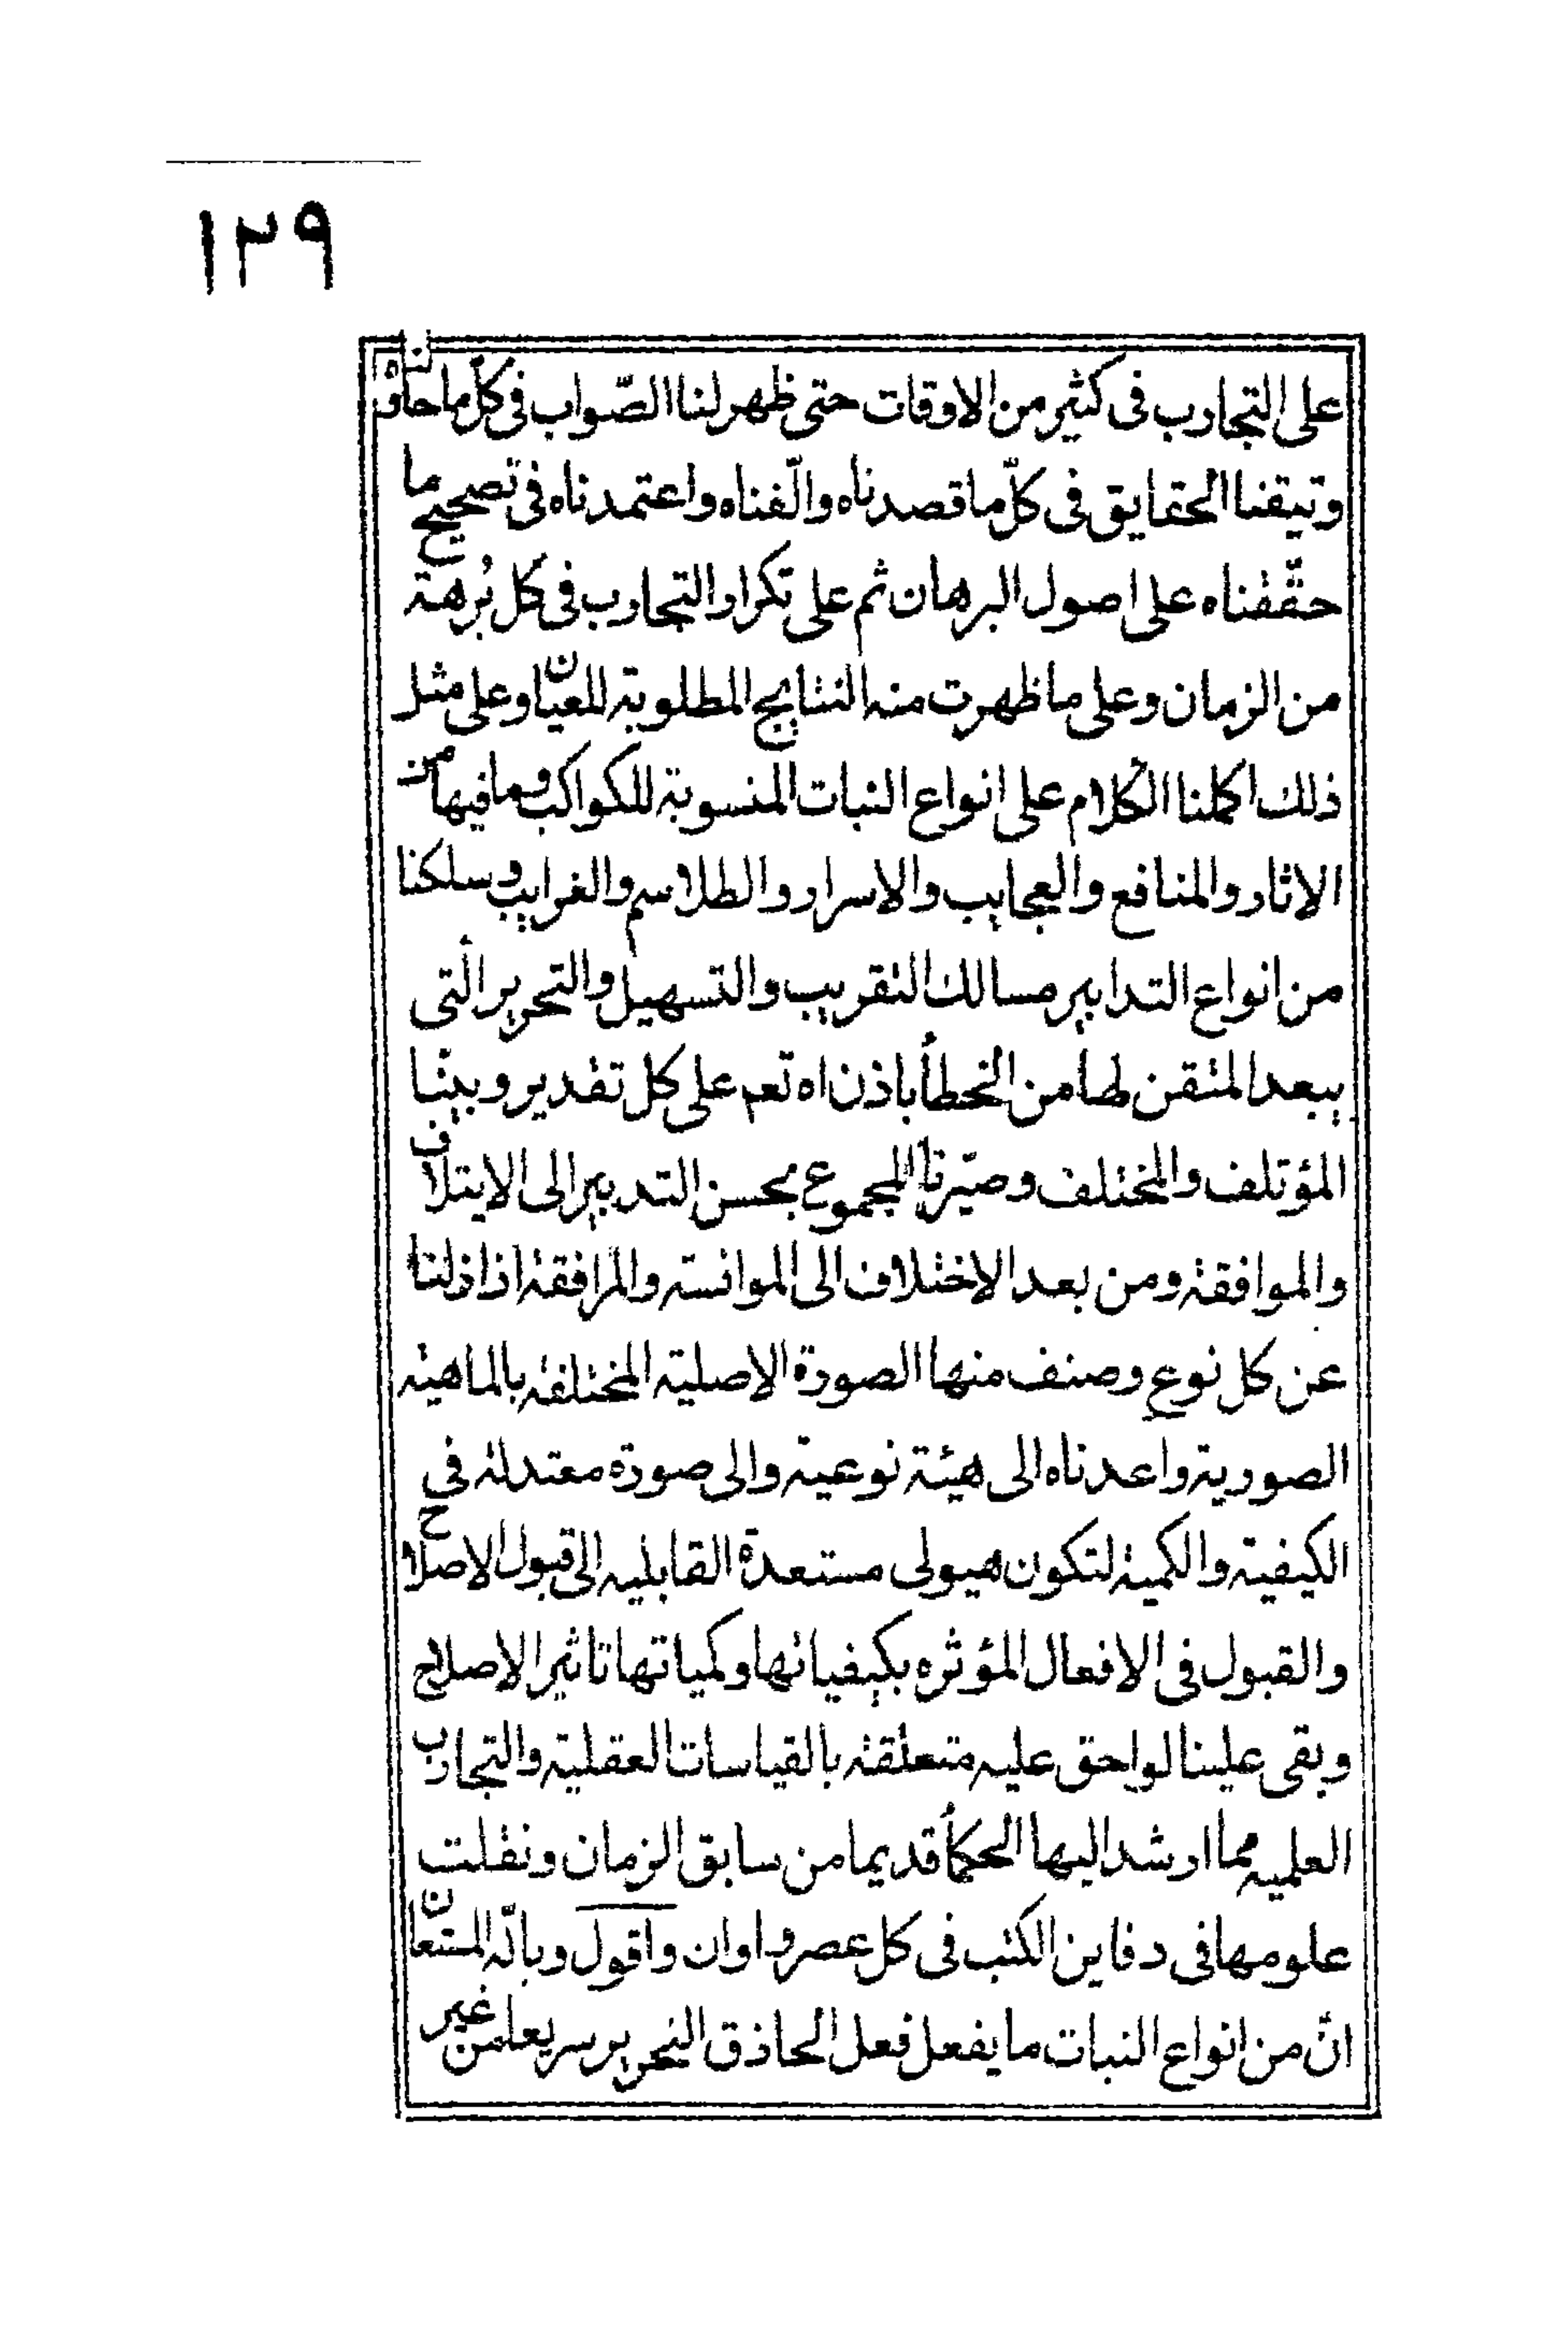 ١٢٩
على التجارب فى كثير من الاوقات حتى ظهر لنا الصّواب فى كلّ ما حاولناه
وتيقنا الحقايق فى كلّ ما قصدناه والّفناه واعتمدناه فى تصحيح ما
حقّقناه على اصول البرهان ثم على تكرار التجارب فى كل بُرهة
من الزمان وعلى ما ظهرت منه النتايج المطلوبة للعيّان وعلى مثل
ذلك اكملنا الكلام على انواع النبات المنسوبة للكواكب وما فيها من
الاثار والمنافع والعجايب والاسرار والطلاسم والغرايب وسلكنا
من انواع التدابير مسالك التقريب والتسهيل والتحرير التى
يبعد المتقن لها من الخطأ باذن اه تعم على كل تقدير وبينّا
المؤتلف والمختلف وصيّرنا المجموع بحسن التدبير الى الايتلاف
والموافقة ومن بعد الاختلاف الى الموانسة والمرافقة اذ ازلنا
عن كل نوع وصنف منها الصورة الاصلية المختلفة بالماهية
الصورية واعدناه الى هيئة نوعية والى صورة معتدلة فى
الكيفية والكمية لتكون هيولى مستعدة القابليه الى قبول الاصلاح
والقبول فى الافعال المؤثره بكيفياتها وكمياتها تاثير الاصلاح
وبقى علينا لواحق عليه متعلقة بالقياسات العقلية والتجارب
العلميه مما ارشد اليها الحكمأ قديما من سابق الزمان ونقلت
علومها فى دفاين الكتب فى كل عصر واوان واقول وبالله المستعان
انّ من انواع النبات ما يفعل فعل الحاذق النحرير سريعا من غير